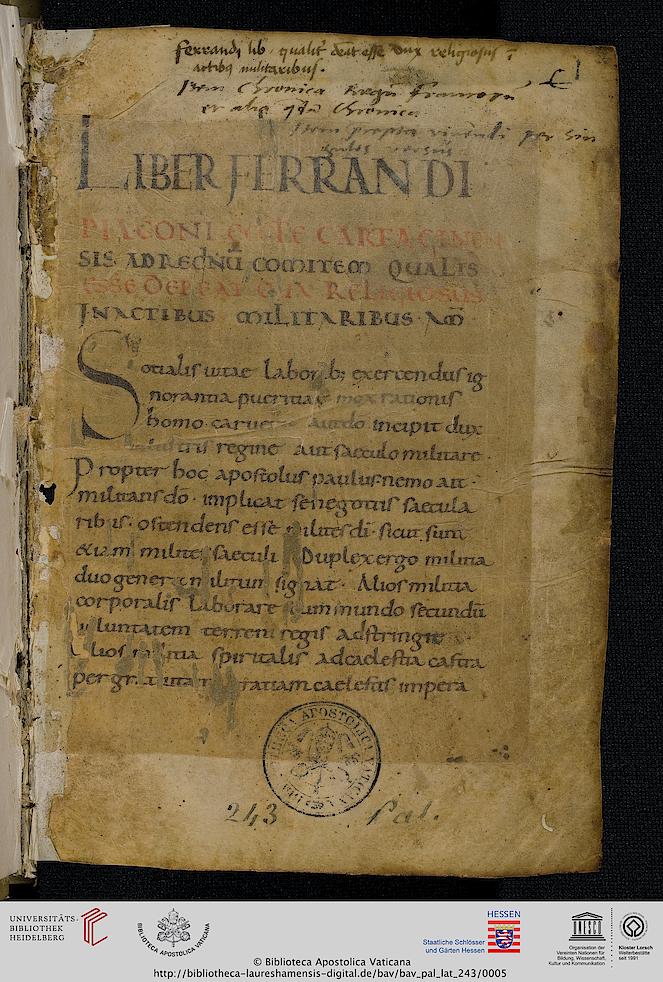 ferrandi lib qualit deat esse dux religiosus ī
actibꝰ militaribus.
Item Chronica Regū francorū
et alia qdā Chronica
Item
LIBER FERRANDI
DIACONI CARTAGINEN
SIS AD REGINŪ COMITEM QUALIS
ESSE DEBEAT DUX RELIGIOSUS
IN ACTIBUS MILITARIBUS AM̄
Sotialis uitae laborib; exercendus ig
norantia pueritiae mox rationis
homo incipit dux
regine aut saeculo militare.
Propter hoc apostolus paulus nemo ait.
militans do. implicat se negotiis saecula
ribus. ostendens esse milites di. sicut sunt
&iam milites saeculi Duplex ergo militia
duo genera militum signat. Alios militia
corporalis laborare cum mundo secundū
uoluntatem terreni regis adstringit
Alios militia spiritalis ad caelestia castra
per gratuitam gratiam caelestis impera
BIBLIOTHECA APOSTOLICA VATICANA
243 Pal.
UNIVERSITÄTS-
BIBLIOTHEK
HEIDELBERG
BIBLIOTECA APOSTOLICA VATICANA
HESSEN
Staatliche Schlösser
und Gärten Hessen
UNESCO
Organisation der
Vereinten Nationen für
Bildung, Wissenschaft,
Kultur und Kommunikation
Kloster Lorsch
Welterbestätte
seit 1991
© Biblioteca Apostolica Vaticana
http://bibliotheca-laureshamensis-digital.de/bav/bav_pal_lat_243/0005